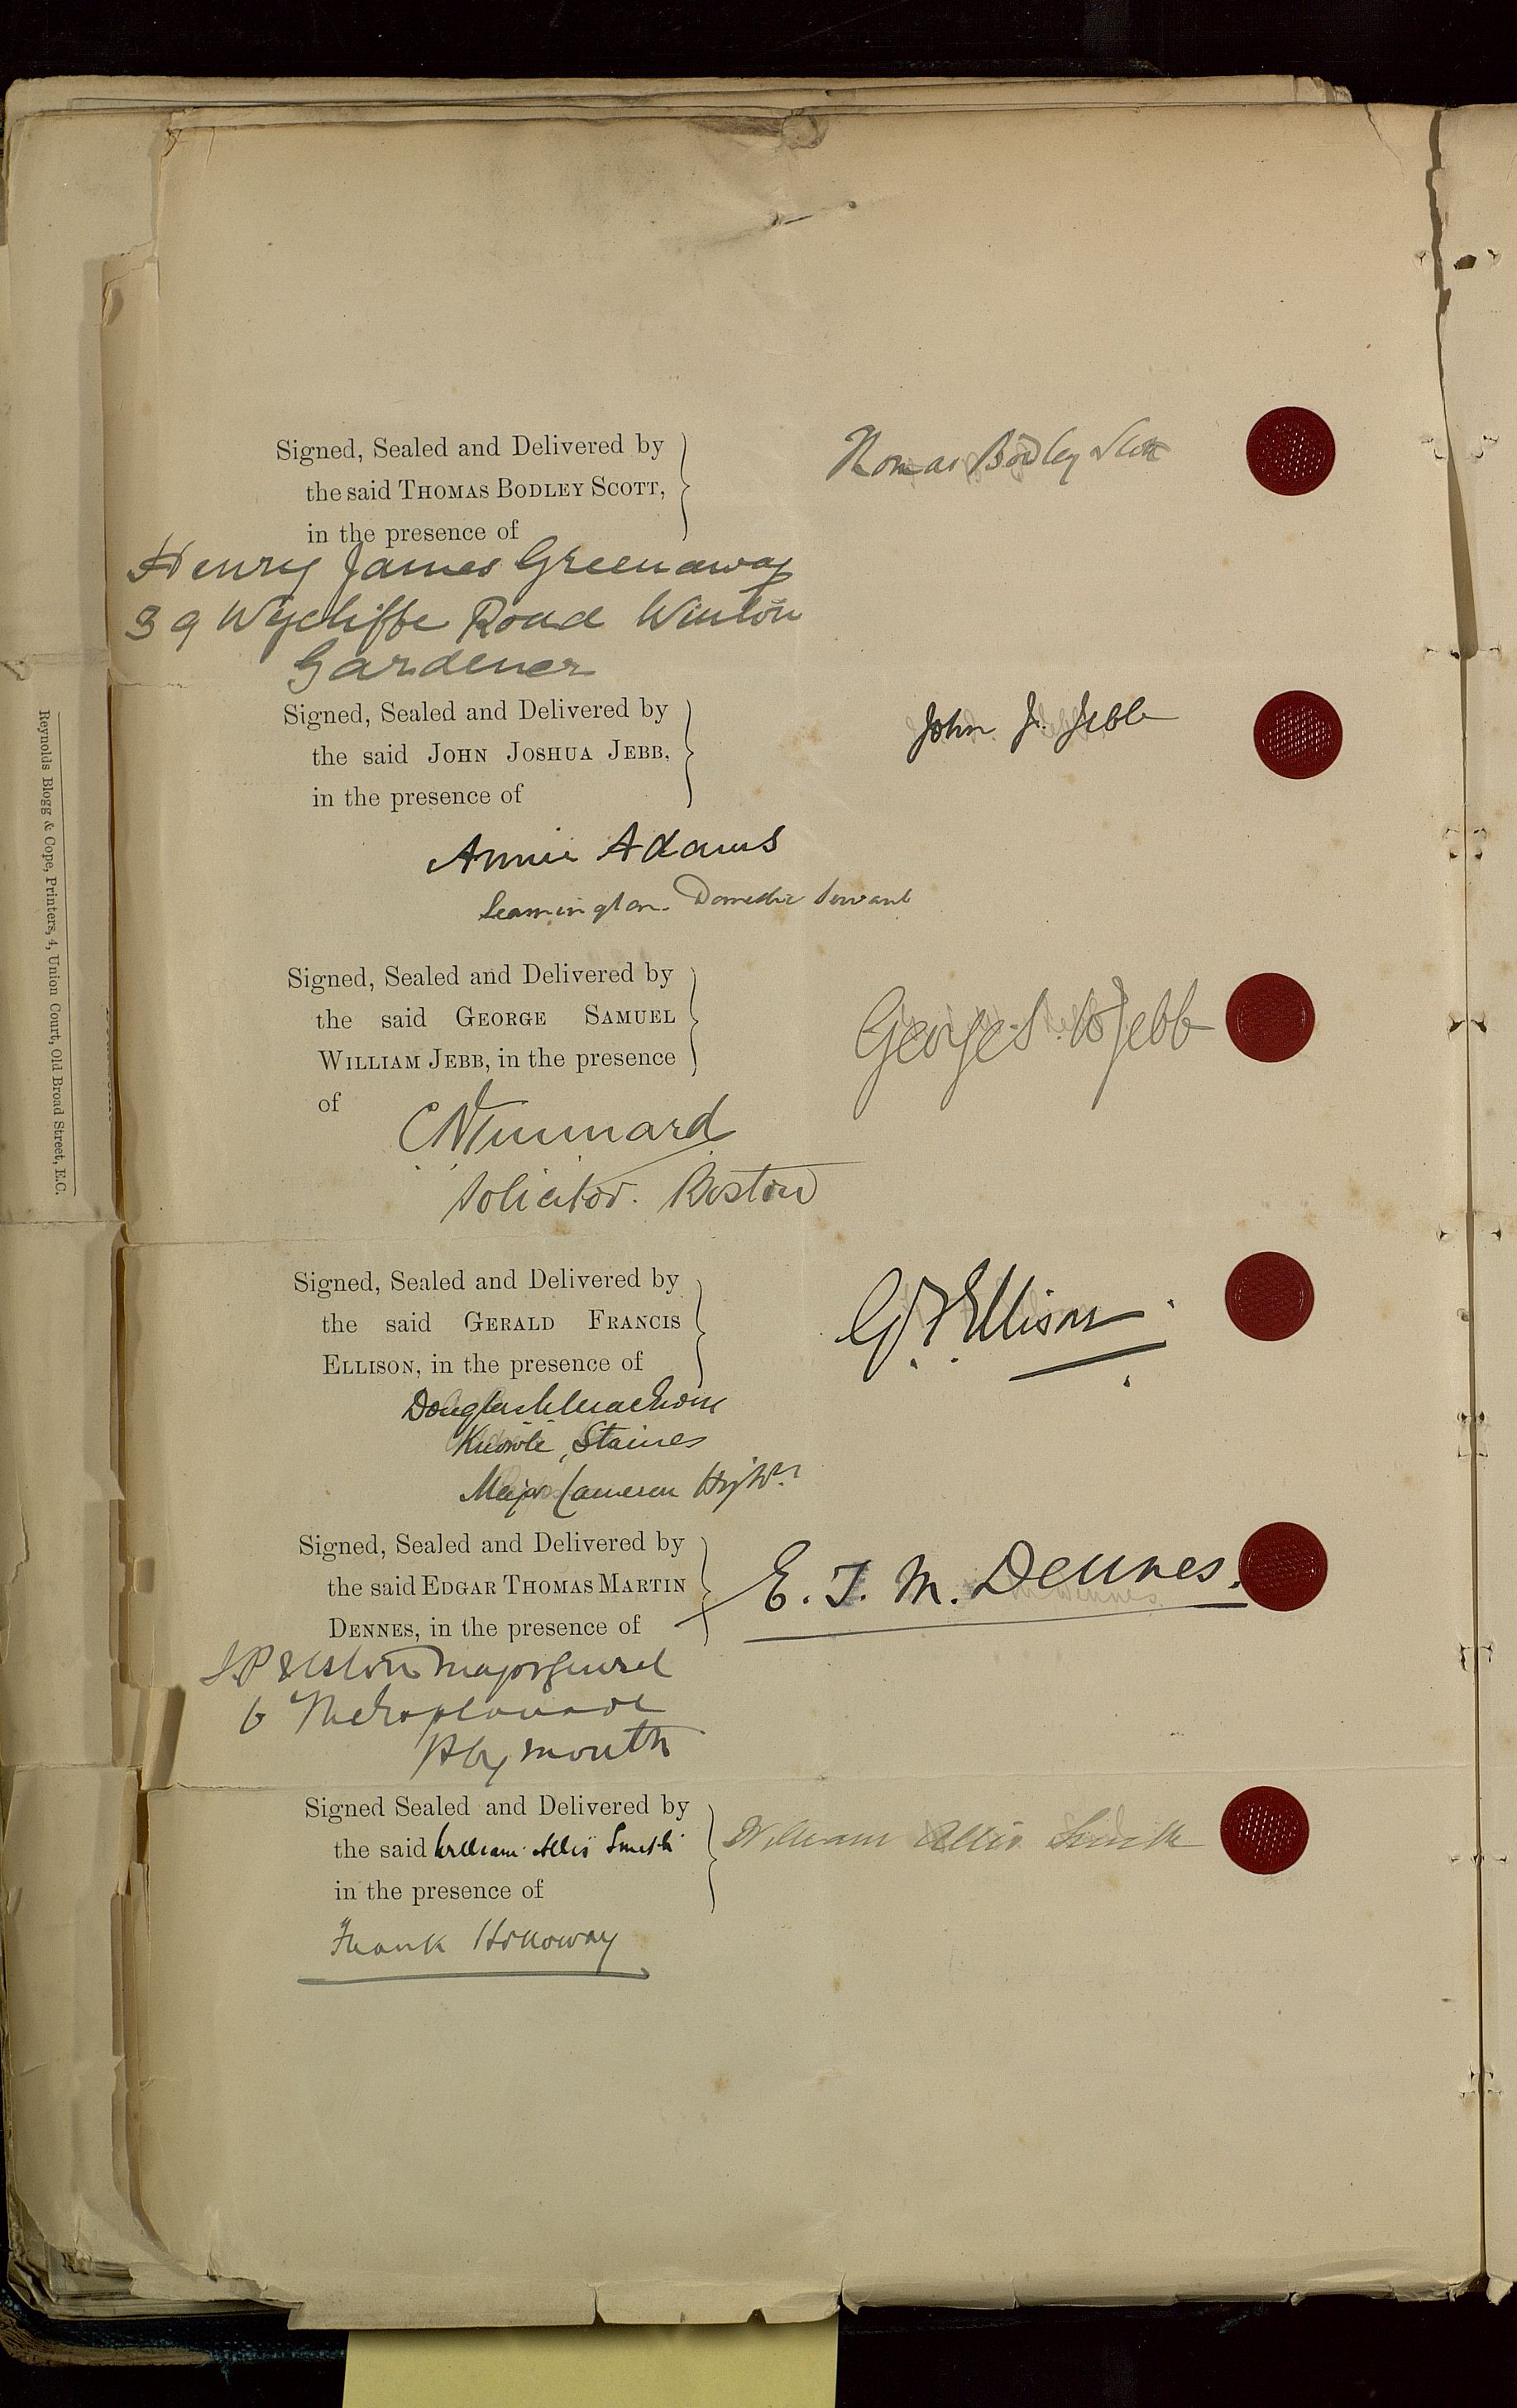 Signed, Sealed and Delivered by
the said THOMAS BODLEY SCOTT,
in the presence of
Thomas Bodley Scott
Henry James Greenaway
39 Wycliffe Road Winton
Gardener
Signed, Sealed and Delivered by
the said JOHN JOSHUA JEBB,
in the presence of
John J. Jebb
Annie Adams
Leamington. Domestic Servant
Signed, Sealed and Delivered by
the said GEORGE SAMUEL
WILLIAM JEBB, in the presence
of
George S. W Jebb
C N Tunnard
Solicitor. Boston
Signed, Sealed and Delivered by
the said GERALD FRANCIS
ELLISON, in the presence of
G. F. Ellison
Douglas
Knowle, Staines
Major Cameron Highrs
Signed, Sealed and Delivered by
the said EDGAR THOMAS MARTIN
DENNES, in the presence of
E. T. M. Dennes.
Major General
6 The Esplanade
Plymouth
Signed Sealed and Delivered by
the said William Allis Smith
in the presence of
William Allis Smith
Frank Holloway
Reynolds Blogg & Cope, Printers, 4, Union Court, Old Broad Street, E.C.